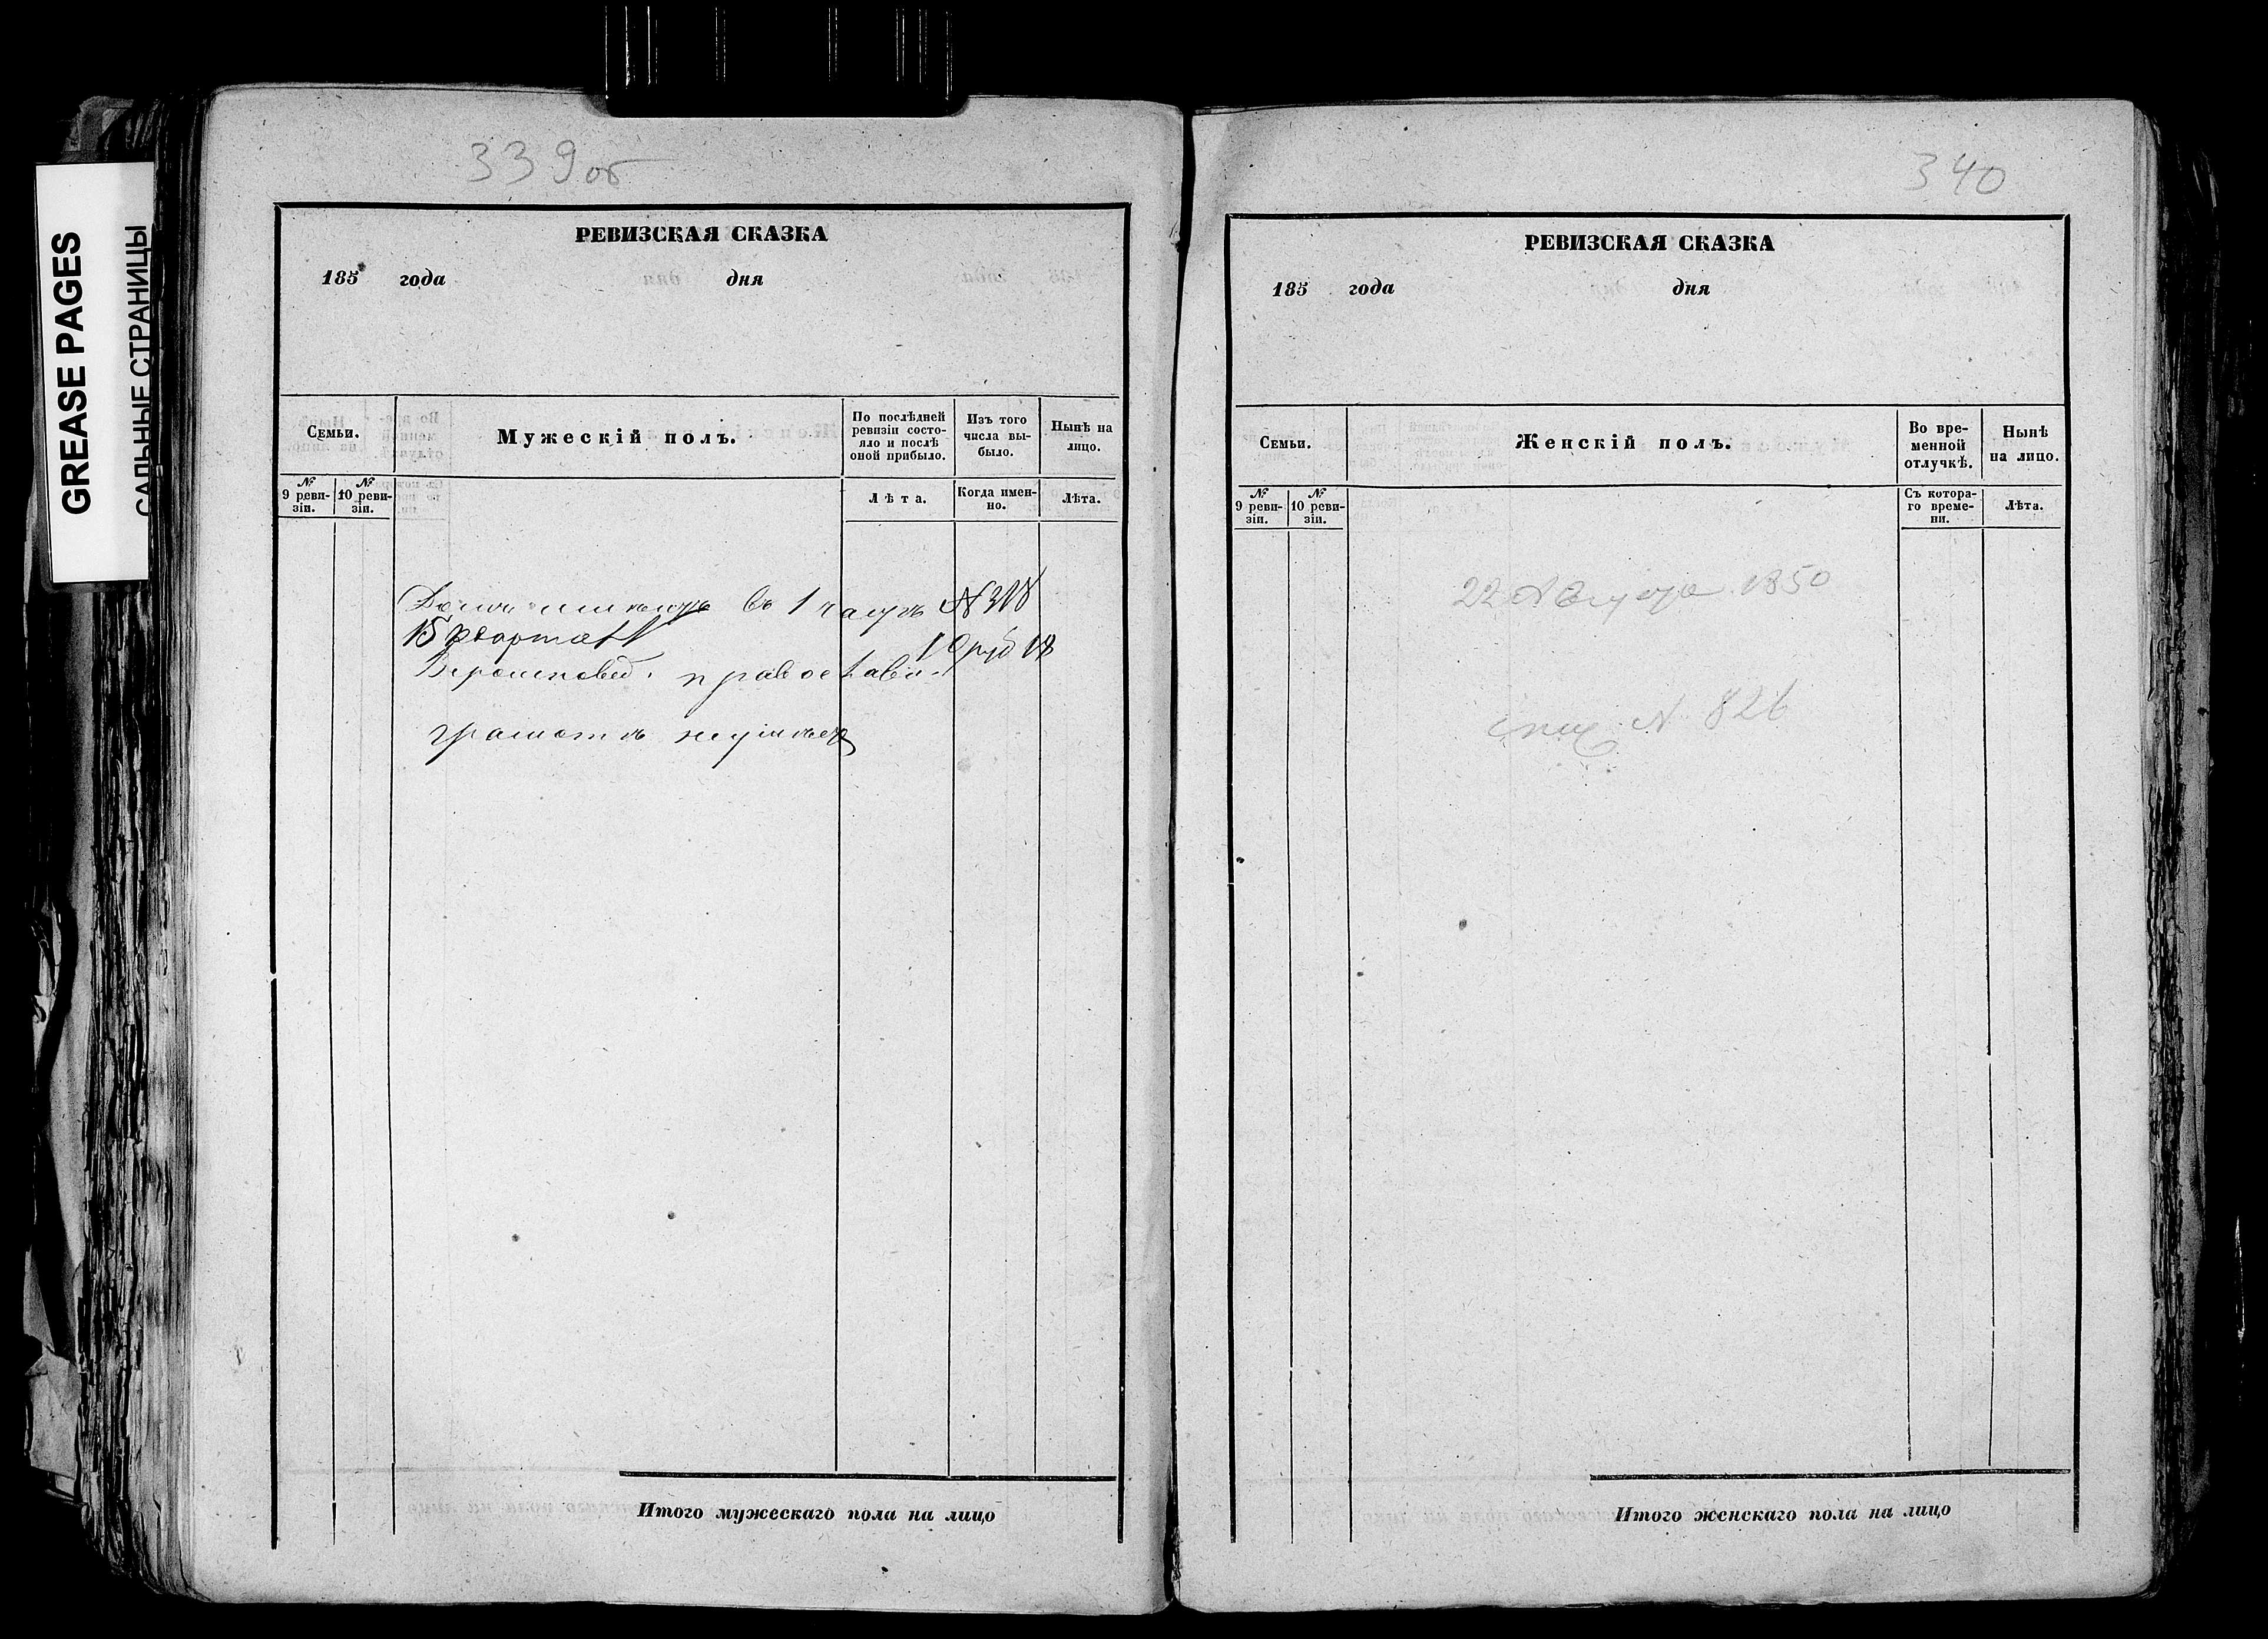 GREASE PAGES
САЛЬНЫЕ СТРАНИЦЫ
339об
РЕВИЗСКАЯ СКАЗКА
185 года дня
Семьи.
Мужескій полъ.
По послѣдней ревизіи состояло и послѣ оной прибыло.
Изъ того числа выбыло.
Нынѣ на лицо.
№ 9 ревизіи.
№ 10 ревизіи.
Лѣта.
Когда именно.
Лѣта.
Домъ имѣетъ въ 1 части №318
15 квартал
Вѣроисповѣд. православн.
грамотѣ неумѣетъ
Итого мужескаго пола на лицо
340
РЕВИЗСКАЯ СКАЗКА
185 года дня
Семьи.
Женскій полъ.
Во временной отлучкѣ.
Нынѣ на лицо.
№ 9 ревизіи.
№ 10 ревизіи.
Съ котораго времени.
Лѣта.
22 Августа 1850
№ 826
Итого женскаго пола на лицо